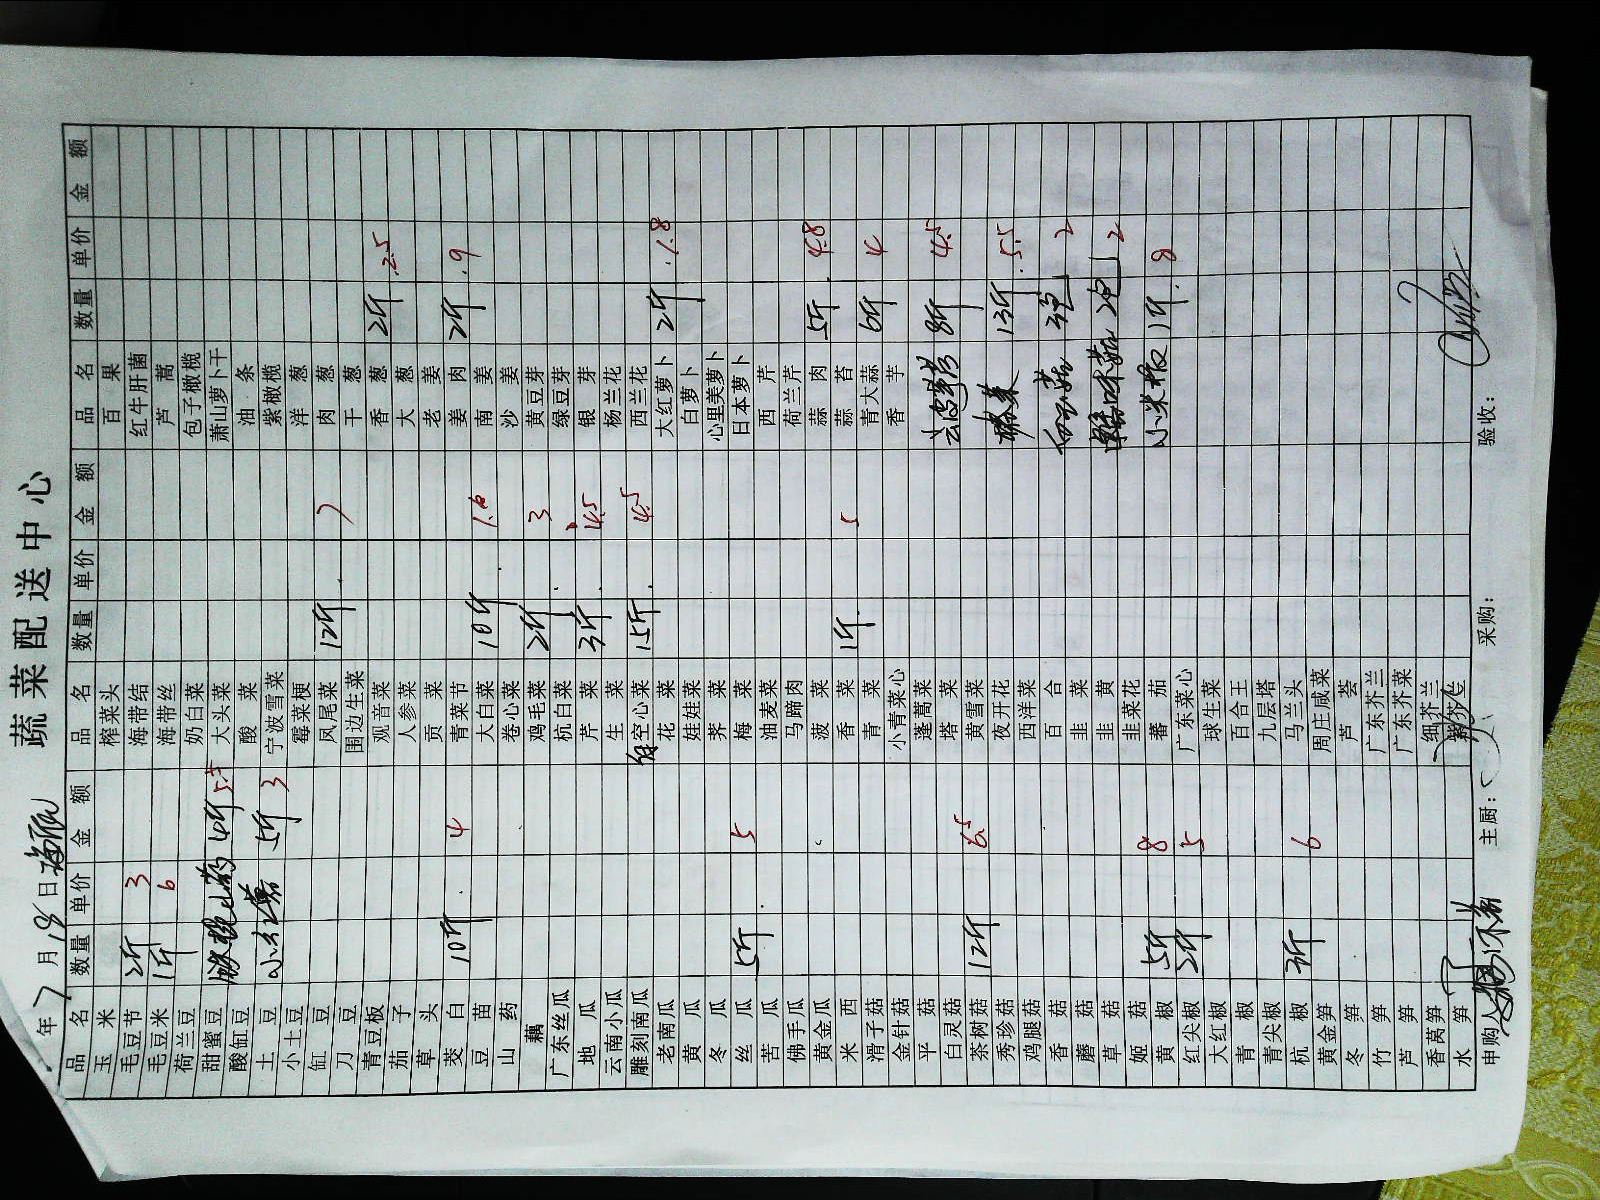 蔬菜配送中心
年7月18日
品名 数量 单价 金额 品名 数量 单价 金额 品名 数量 单价 金额
玉米 榨菜头 百果
毛豆节 2斤 3 海带结 红牛肝菌
毛豆米 1斤 6 海带丝 芦蒿
荷兰豆 奶白菜 包子橄榄
甜蜜豆 山药 4斤 大头菜 萧山萝卜干
酸缸豆 酸菜 油条
土豆 小红薯 5斤 3 宁波雪菜 紫橄榄
小土豆 霉菜梗 洋葱
缸豆 凤尾菜 12斤 7 肉葱
刀豆 围边生菜 干葱
青豆板 观音菜 香葱 2斤 2.5
茄子 人参菜 大葱
草头 贡菜 老姜
茭白 10斤 4 青菜节 姜肉 2斤 9
豆苗 大白菜 10斤 1.6 南姜
山药 卷心菜 沙姜
藕 鸡毛菜 2斤 3 黄豆芽
广东丝瓜 杭白菜 绿豆芽
地瓜 芹菜 3斤 4.5 银芽
云南小瓜 生菜 杨兰花
雕刻南瓜 空心菜 15斤 4.5 西兰花
老南瓜 花菜 大红萝卜 2斤 1.8
黄瓜 娃娃菜 白萝卜
冬瓜 荠菜 心里美萝卜
丝瓜 5斤 5 梅菜 日本萝卜
苦瓜 油麦菜 西芹
佛手瓜 马蹄肉 荷兰芹
黄金瓜 菠菜 蒜肉 5斤 4.8
米西 香菜 1斤 5 蒜苔
滑子菇 青菜 青大蒜 6斤 4
金针菇 小青菜心 香芋
平菇 蓬蒿菜
白灵菇 塔菜 8斤 4.5
茶树菇 12斤 6.5 黄雪菜
秀珍菇 夜开花 13斤 5.5
鸡腿菇 西洋菜
香菇 百合 3包 2
蘑菇 韭菜
草菇 韭黄 2包 2
姬菇 韭菜花
黄椒 5斤 8 蕃茄 小米椒 1斤 8
红尖椒 2斤 5 广东菜心
大红椒 球生菜
青椒 百合王
青尖椒 九层塔
杭椒 3斤 6 马兰头
黄金笋 周庄咸菜
冬笋 芦荟
竹笋 广东芥兰
芦笋 广东芥菜
香莴笋 细芥兰
水笋
申购: 主厨: 采购: 验收: